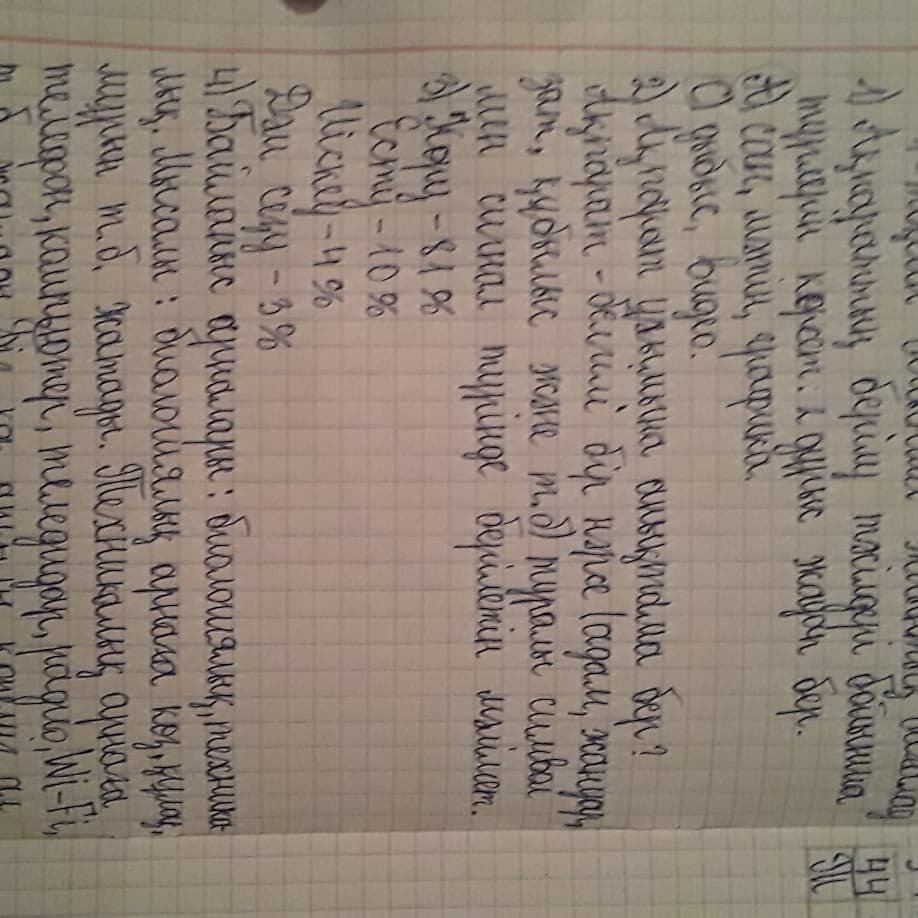 1) Ақпараттың берілу тәсілдері бойынша
түрлерін көрсет: 2 дұрыс жауап бер.
А) сан, мәтін, графика.
С) дыбыс, видио.
2) Ақпарат ұғымына анықтама бер?
Ақпарат - белгілі бір нәрсе (адам, жануар,
зат, құбылыс және т.б) туралы символ
мен сигнал түрінде берілетін мәлімет.
3) Көру - 81%
Есту - 10%
Иіскеу - 4%
Дәм сезу - 3%
4) Байланыс арналары: биологиялық, техника-
лық. Мысалы: биологиялық арнаға көз, құлақ,
мұрын т.б. жатады. Техникалық арнаға
телефон, компьютер, теледидар, радио, Wi-Fi,
44